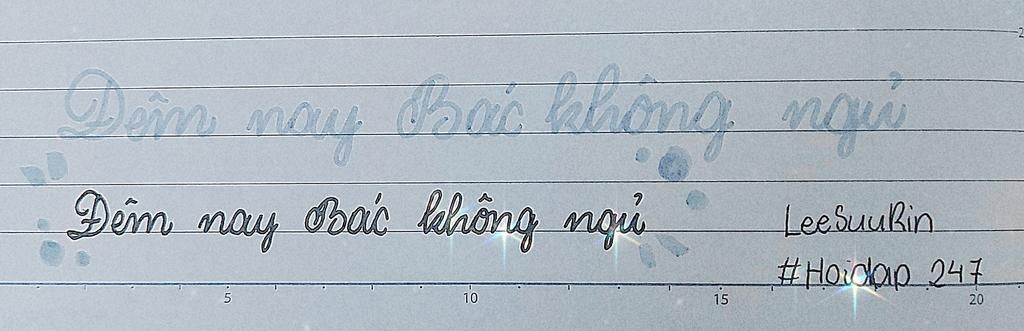 Đêm nay Bác không ngủ
Đêm nay Bác không ngủ
LeeSuuRin
#Hoidap 247
5 10 15 20